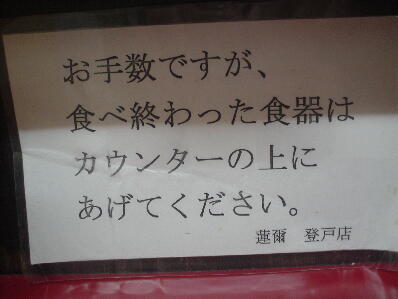 お手数ですが、
食べ終わった食器は
カウンターの上に
あげてください。
蓮爾　登戸店